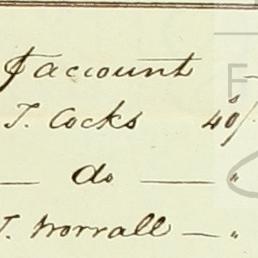 ₱ account —
T. Cocks 40/.
— do — "
T. Worrall — "